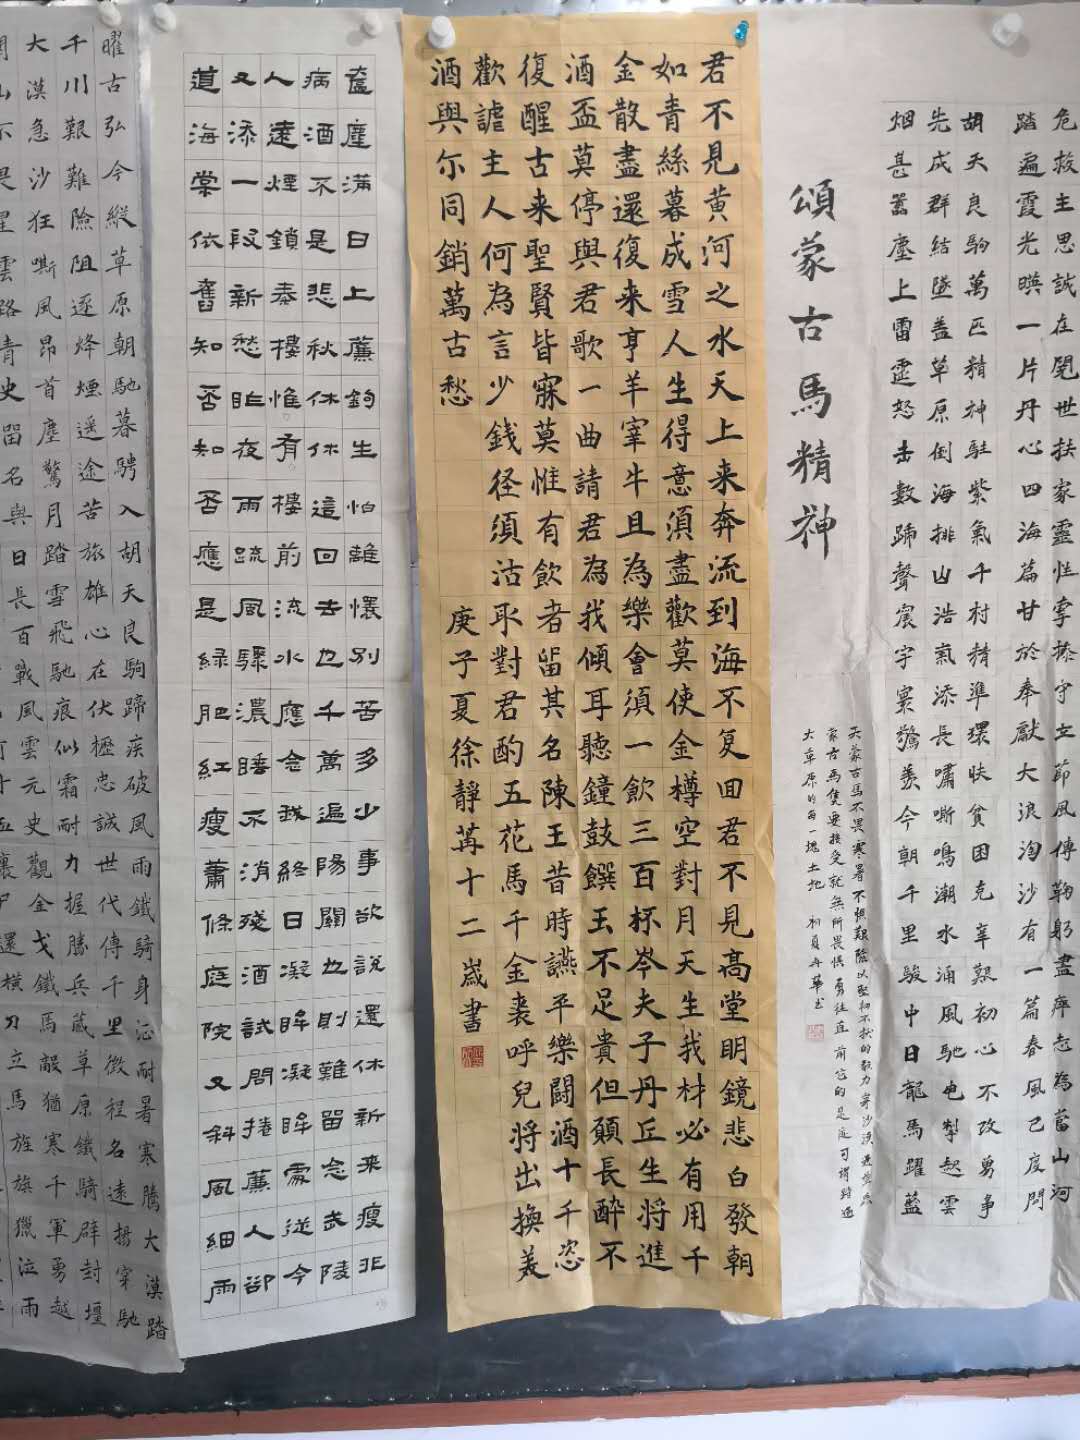 危救主思誠在晃世扶家靈性守立節風傳鞠躬盡瘁志為當山河
踏遍霞光暎一片丹心四海篇甘於奉獻大浪淘沙有一篇春風已度門
胡天良駒萬匹精神駐紫氣千村精準環扶貧困克辛艱初心不改勇爭
先成群結墜盖草原倒海排山浩氣添長嘯嘶鳴潮水涌風馳电掣起雲
烟甚囂塵上雷霆怒击數蹄聲宸宇寰驚羨今朝千里駿中日龍馬躍藍
頌蒙古馬精神
夫蒙古馬不畏寒暑不惧艱險以堅韌不拔的毅力穿沙漠
蒙古馬無所畏惧勇往直前
大草原的每一塊土地
君不見黄河之水天上来奔流到海不复回君不見高堂明鏡悲白發朝
如青絲暮成雪人生得意須盡歡莫使金樽空對月天生我材必有用千
金散盡還復来亨羊宰牛且為樂會須一飲三百杯岑夫子丹丘生將進
酒盃莫停與君歌一曲請君為我傾耳聽鐘鼓饌玉不足貴但願長醉不
復醒古来聖賢皆寐莫惟有飲者留其名陳王昔時讌平樂鬪酒十千恣
歡謔主人何為言少銭径須沽取對君酌五花馬千金裘呼兒將出換美
酒與尔同銷萬古愁 庚子夏徐靜苒十二嵗書
奩塵滿日上簾鈎生怕離懷別苦多少事欲說還休新来瘦非
病酒不是悲秋休休這回去也千萬遍陽關也則難留念武陵
人遠煙鎖秦樓惟有樓前流水應念我終日凝眸凝眸處從今
又添一段新愁昨夜雨疏風驟濃睡不消殘酒試問捲簾人卻
道海棠依舊知否知否應是綠肥紅瘦蕭條庭院又斜風細雨
曜古弘今縱草原朝馳暮騁入胡天良駒蹄疾破風雨鐵騎身耐暑寒騰大漠踏
千川艱難險阻逐烽煙遥途苦旅雄心在伏櫪忠誠世代傳千里徵程名遠揚穿馳
大漠急沙狂嘶風昂首塵驚月踏雪飛馳痕似霜耐力握勝兵蔵草原鐵騎辟封壃
山不畏星雲路青史留名與日長百戰風雲元史觀金戈鐵馬敵猶寒千軍勇越